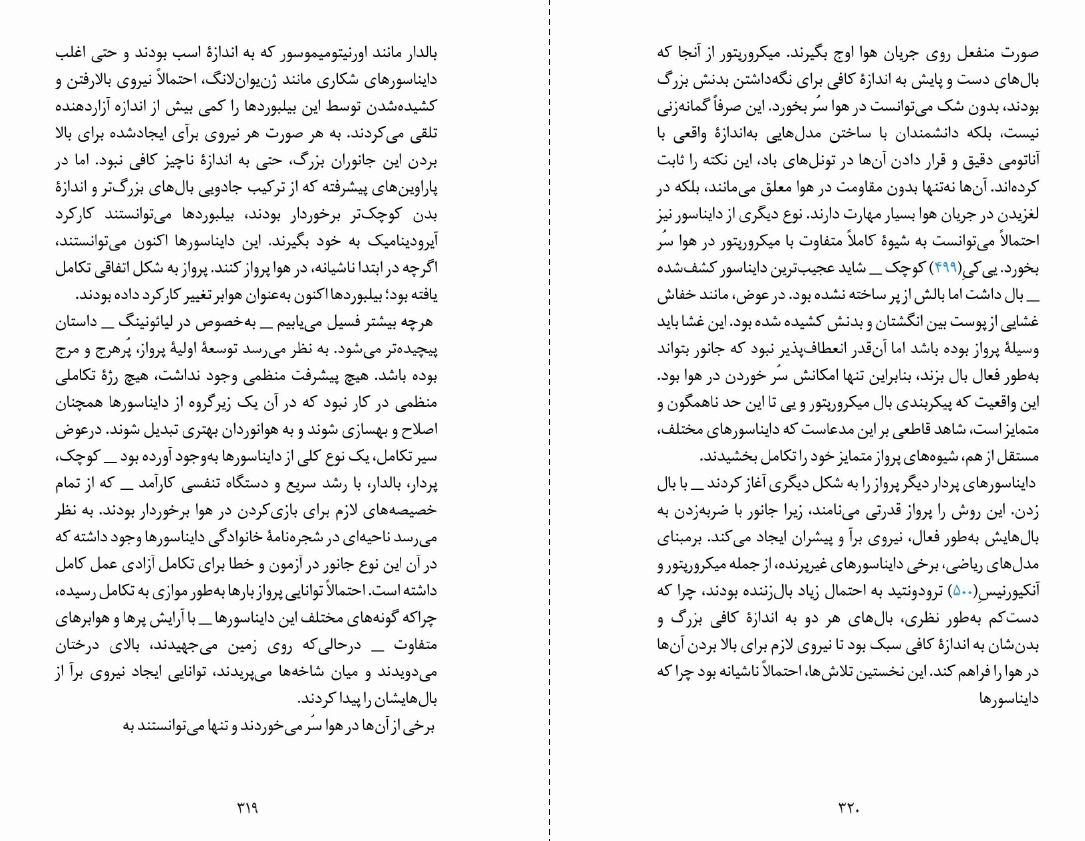 بالدار مانند اورنیتومیموسور که به اندازهٔ اسب بودند و حتی اغلب
دایناسورهای شکاری مانند ژن‌یوان‌لانگ، احتمالاً نیروی بالارفتن و
کشیده‌شدن توسط این بیلبوردها را کمی بیش از اندازه آزاردهنده
تلقی می‌کردند. به هر صورت هر نیروی برآی ایجادشده برای بالا
بردن این جانوران بزرگ، حتی به اندازهٔ ناچیز کافی نبود. اما در
پاراوین‌های پیشرفته که از ترکیب جادویی بال‌های بزرگ‌تر و اندازهٔ
بدن کوچک‌تر برخوردار بودند، بیلبوردها می‌توانستند کارکرد
آیرودینامیک به خود بگیرند. این دایناسورها اکنون می‌توانستند،
اگرچه در ابتدا ناشیانه، در هوا پرواز کنند. پرواز به شکل اتفاقی تکامل
یافته بود؛ بیلبوردها اکنون به‌عنوان هوابر تغییر کارکرد داده بودند.
هرچه بیشتر فسیل می‌یابیم _ به‌خصوص در لیائونینگ _ داستان
پیچیده‌تر می‌شود. به نظر می‌رسد توسعهٔ اولیهٔ پرواز، پُرهرج و مرج
بوده باشد. هیچ پیشرفت منظمی وجود نداشت، هیچ رژهٔ تکاملی
منظمی در کار نبود که در آن یک زیرگروه از دایناسورها همچنان
اصلاح و بهسازی شوند و به هوانوردان بهتری تبدیل شوند. درعوض
سیر تکامل، یک نوع کلی از دایناسورها به‌وجود آورده بود _ کوچک،
پردار، بالدار، با رشد سریع و دستگاه تنفسی کارآمد _ که از تمام
خصیصه‌های لازم برای بازی‌کردن در هوا برخوردار بودند. به نظر
می‌رسد ناحیه‌ای در شجره‌نامهٔ خانوادگی دایناسورها وجود داشته که
در آن این نوع جانور در آزمون و خطا برای تکامل آزادی عمل کامل
داشته است. احتمالاً توانایی پرواز بارها به‌طور موازی به تکامل رسیده،
چراکه گونه‌های مختلف این دایناسورها _ با آرایش پرها و هوابرهای
متفاوت _ درحالی‌که روی زمین می‌جهیدند، بالای درختان
می‌دویدند و میان شاخه‌ها می‌پریدند، توانایی ایجاد نیروی برآ از
بال‌هایشان را پیدا کردند.
برخی از آن‌ها در هوا سُر می‌خوردند و تنها می‌توانستند به
۳۱۹
صورت منفعل روی جریان هوا اوج بگیرند. میکروریپتور از آنجا که
بال‌های دست و پایش به اندازهٔ کافی برای نگه‌داشتن بدنش بزرگ
بودند، بدون شک می‌توانست در هوا سُر بخورد. این صرفاً گمانه‌زنی
نیست، بلکه دانشمندان با ساختن مدل‌هایی به‌اندازهٔ واقعی با
آناتومی دقیق و قرار دادن آن‌ها در تونل‌های باد، این نکته را ثابت
کرده‌اند. آن‌ها نه‌تنها بدون مقاومت در هوا معلق می‌مانند، بلکه در
لغزیدن در جریان هوا بسیار مهارت دارند. نوع دیگری از دایناسور نیز
احتمالاً می‌توانست به شیوهٔ کاملاً متفاوت با میکروریپتور در هوا سُر
بخورد. یی‌کیِ(۴۹۹) کوچک _ شاید عجیب‌ترین دایناسور کشف‌شده
_ بال داشت اما بالش از پر ساخته نشده بود. در عوض، مانند خفاش
غشایی از پوست بین انگشتان و بدنش کشیده شده بود. این غشا باید
وسیلهٔ پرواز بوده باشد اما آن‌قدر انعطاف‌پذیر نبود که جانور بتواند
به‌طور فعال بال بزند، بنابراین تنها امکانش سُر خوردن در هوا بود.
این واقعیت که پیکربندی بال میکروریپتور و یی تا این حد ناهمگون و
متمایز است، شاهد قاطعی بر این مدعاست که دایناسورهای مختلف،
مستقل از هم، شیوه‌های پرواز متمایز خود را تکامل بخشیدند.
دایناسورهای پردار دیگر پرواز را به شکل دیگری آغاز کردند _ با بال
زدن. این روش را پرواز قدرتی می‌نامند، زیرا جانور با ضربه‌زدن به
بال‌هایش به‌طور فعال، نیروی برآ و پیشران ایجاد می‌کند. برمبنای
مدل‌های ریاضی، برخی دایناسورهای غیرپرنده، از جمله میکروریپتور و
آنکیورنیسِ(۵۰۰) ترودونتید به احتمال زیاد بال‌زننده بودند، چرا که
دست‌کم به‌طور نظری، بال‌های هر دو به اندازهٔ کافی بزرگ و
بدن‌شان به اندازهٔ کافی سبک بود تا نیروی لازم برای بالا بردن آن‌ها
در هوا را فراهم کند. این نخستین تلاش‌ها، احتمالاً ناشیانه بود چرا که
دایناسورها
۳۲۰